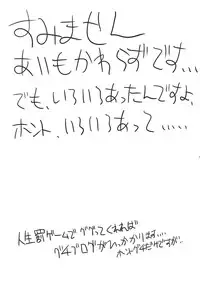 すみません
あいもかわらずです…
でも、いろいろあったんですよ、
ホント、いろいろあって……
人生罰ゲームでググってくれれば
グチブログがひっかかります……
ホントグチだけですが…